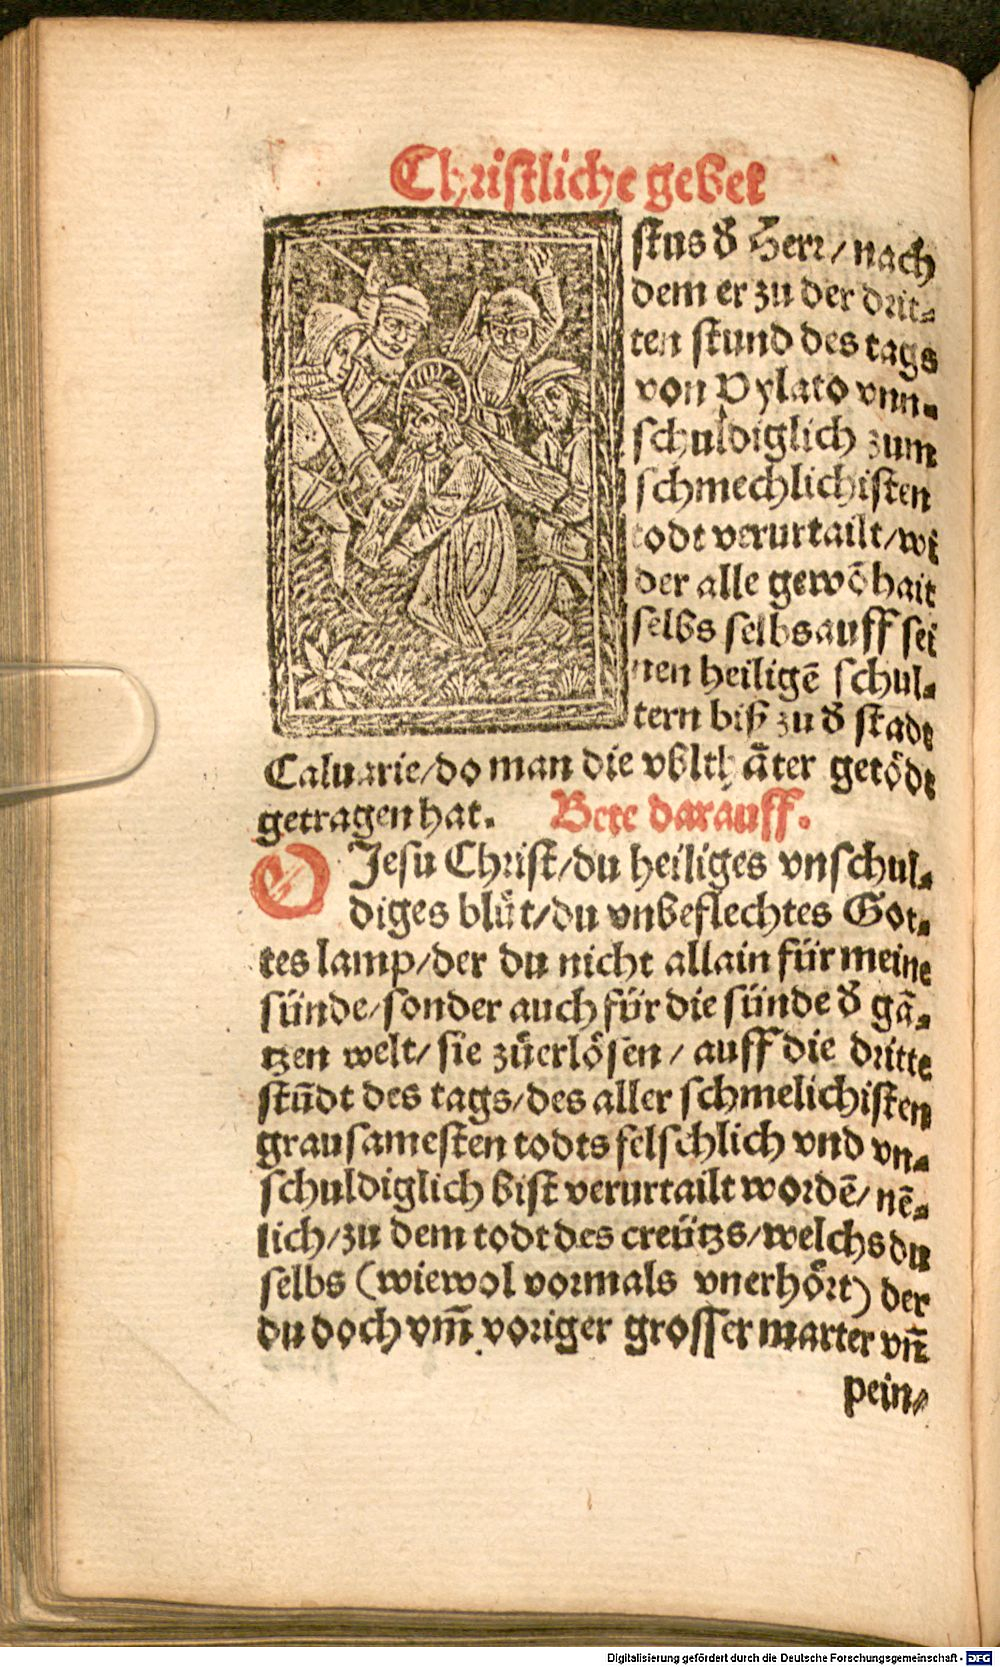 Christliche gebet
stus d̕ Herr/ nach
dem er zu der drit⸗
ten stund des tags
von Pylato vnn⸗
schuldiglich zum
schmechlichisten
todt verurtailt/wi
der alle gewõhait
selbs selbs auff sei
nen heiligẽ schul⸗
tern biß zu d̕ stadt
Caluarie/do man die vblthäter getödt
getragen hat. Bete darauff.
O Jesu Christ/du heiliges vnschul⸗
diges blůt/du vnbeflechtes Got⸗
tes lamp/der du nicht allain für meine
sünde/sonder auch für die sünde d̕ gã⸗
tzen welt/ sie zůerlösen/ auff die dritte
stũdt des tags/des aller schmelichisten
grausamesten todts felschlich vnd vn⸗
schuldiglich bist verurtailt wordẽ/ nẽ⸗
lich/zu dem todt des creützs/welchs du
selbs (wiewol vormals vnerhört) der
du doch vm̃ voriger grosser marter vñ
pein/
Digitalisierung gefördert durch die Deutsche Forschungsgemeinschaft - DFG